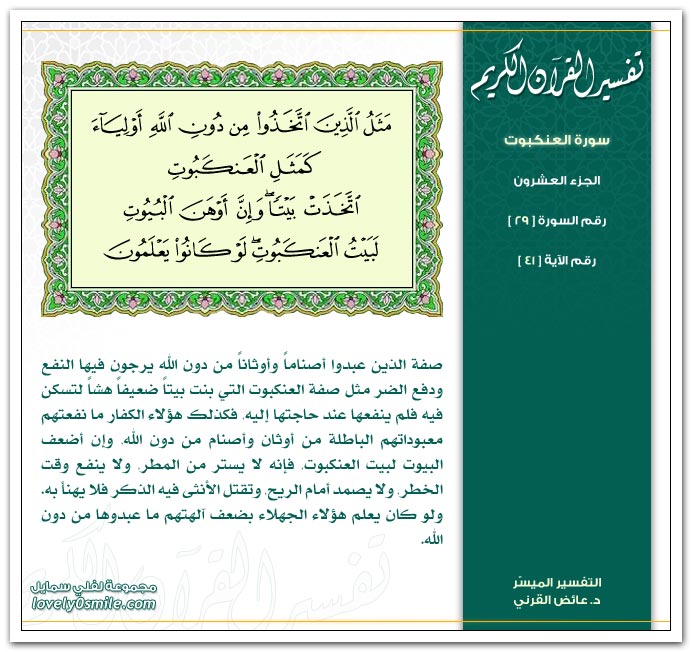 تفسير القرآن الكريم
سورة العنكبوت
الجزء العشرون
رقم السورة [ ٢٩ ]
رقم الآية [ ٤١ ]
مَثَلُ الَّذِينَ اتَّخَذُوا مِن دُونِ اللَّهِ أَوْلِيَاءَ
كَمَثَلِ الْعَنكَبُوتِ
اتَّخَذَتْ بَيْتًا ۖ وَإِنَّ أَوْهَنَ الْبُيُوتِ
لَبَيْتُ الْعَنكَبُوتِ ۖ لَوْ كَانُوا يَعْلَمُونَ
صفة الذين عبدوا أصناماً وأوثاناً من دون الله يرجون فيها النفع
ودفع الضر مثل صفة العنكبوت التي بنت بيتاً ضعيفاً هشاً لتسكن
فيه فلم ينفعها عند حاجتها إليه، فكذلك هؤلاء الكفار ما نفعتهم
معبوداتهم الباطلة من أوثان وأصنام من دون الله، وإن أضعف
البيوت لبيت العنكبوت، فإنه لا يستر من المطر، ولا ينفع وقت
الخطر، ولا يصمد أمام الريح، وتقتل الأنثى فيه الذكر فلا يهنأ به،
ولو كان يعلم هؤلاء الجهلاء بضعف آلهتهم ما عبدوها من دون
الله.
التفسير الميسّر
د. عائض القرني
مجموعة لفلي سمايل
lovely0smile.com
تفسير القرآن الكريم